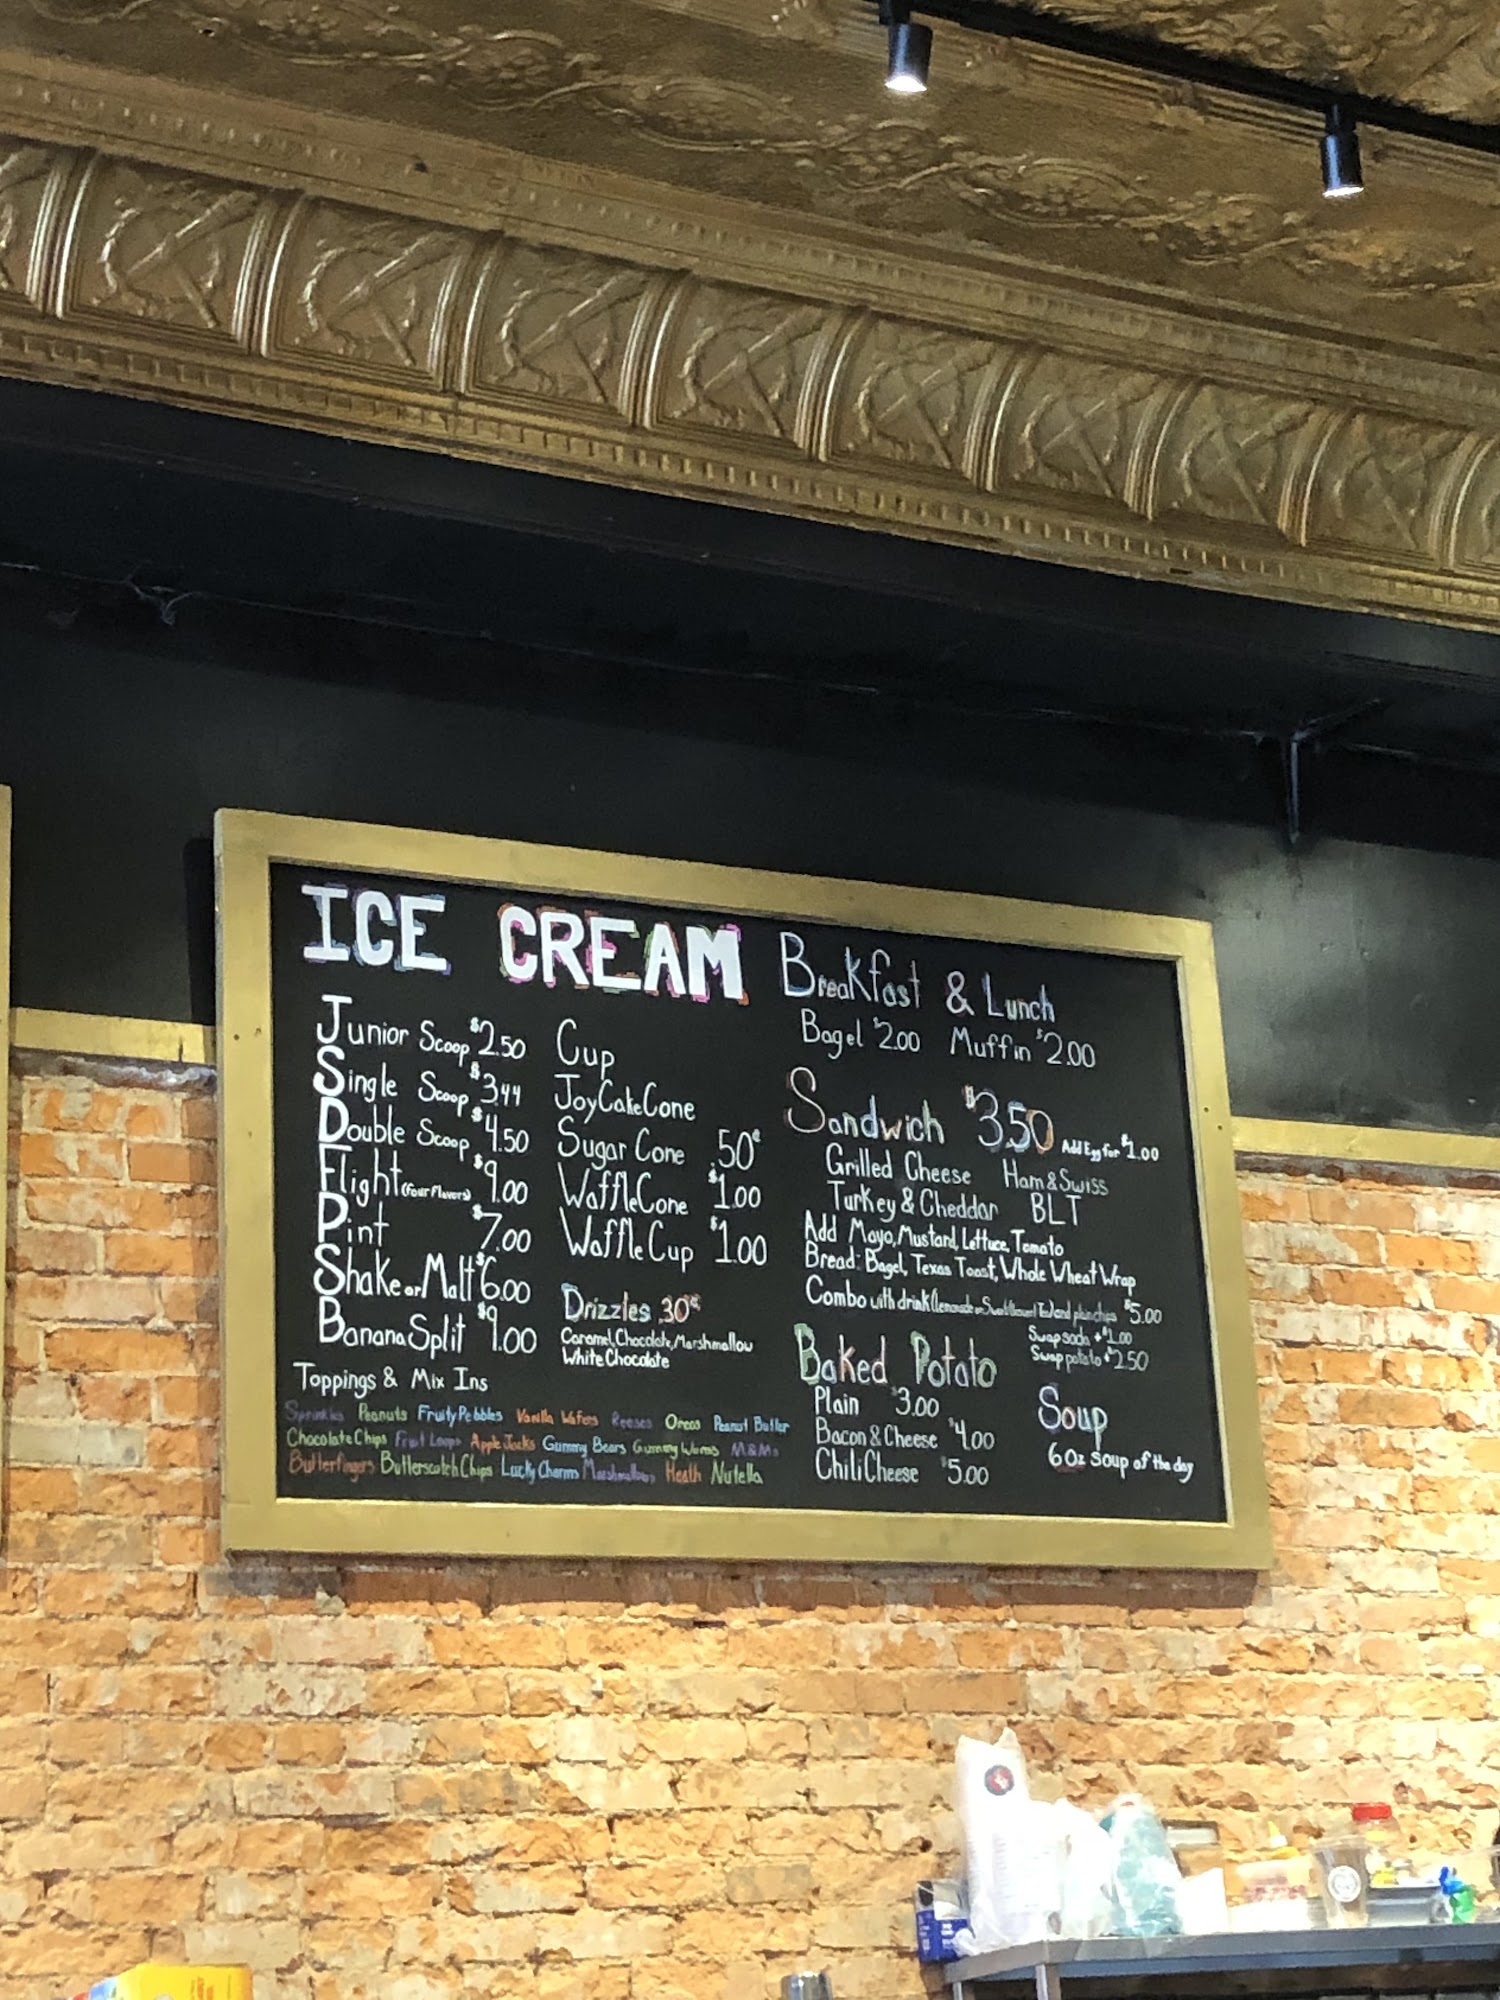 ICE CREAM
Junior Scoop $2.50
Single Scoop $3.44
Double Scoop $4.50
Flight (Four Flavors) $9.00
Pint $7.00
Shake or Malt $6.00
Banana Split $9.00
Cup
Joy Cake Cone
Sugar Cone .50¢
Waffle Cone $1.00
Waffle Cup $1.00
Drizzles .30¢
Caramel, Chocolate, Marshmallow
White Chocolate
Toppings & Mix Ins
Sprinkles Peanuts Fruity Pebbles Vanilla Wafers Reeses Oreos Peanut Butter
Chocolate Chips Fruit Loops Apple Jacks Gummy Bears Gummy Worms M&Ms
Butterfingers Butterscotch Chips Lucky Charms Marshmallows Heath Nutella
Breakfast & Lunch
Bagel $2.00 Muffin $2.00
Sandwich $3.50 Add Egg for $1.00
Grilled Cheese Ham & Swiss
Turkey & Cheddar BLT
Add Mayo, Mustard, Lettuce, Tomato
Bread: Bagel, Texas Toast, Whole Wheat Wrap
Combo with drink (lemonade or Sweet/ Tea) and plain chips $5.00
Swap soda +$1.00
Swap potato +$2.50
Baked Potato
Plain $3.00
Bacon & Cheese $4.00
Chili Cheese $5.00
Soup
6 Oz Soup of the day